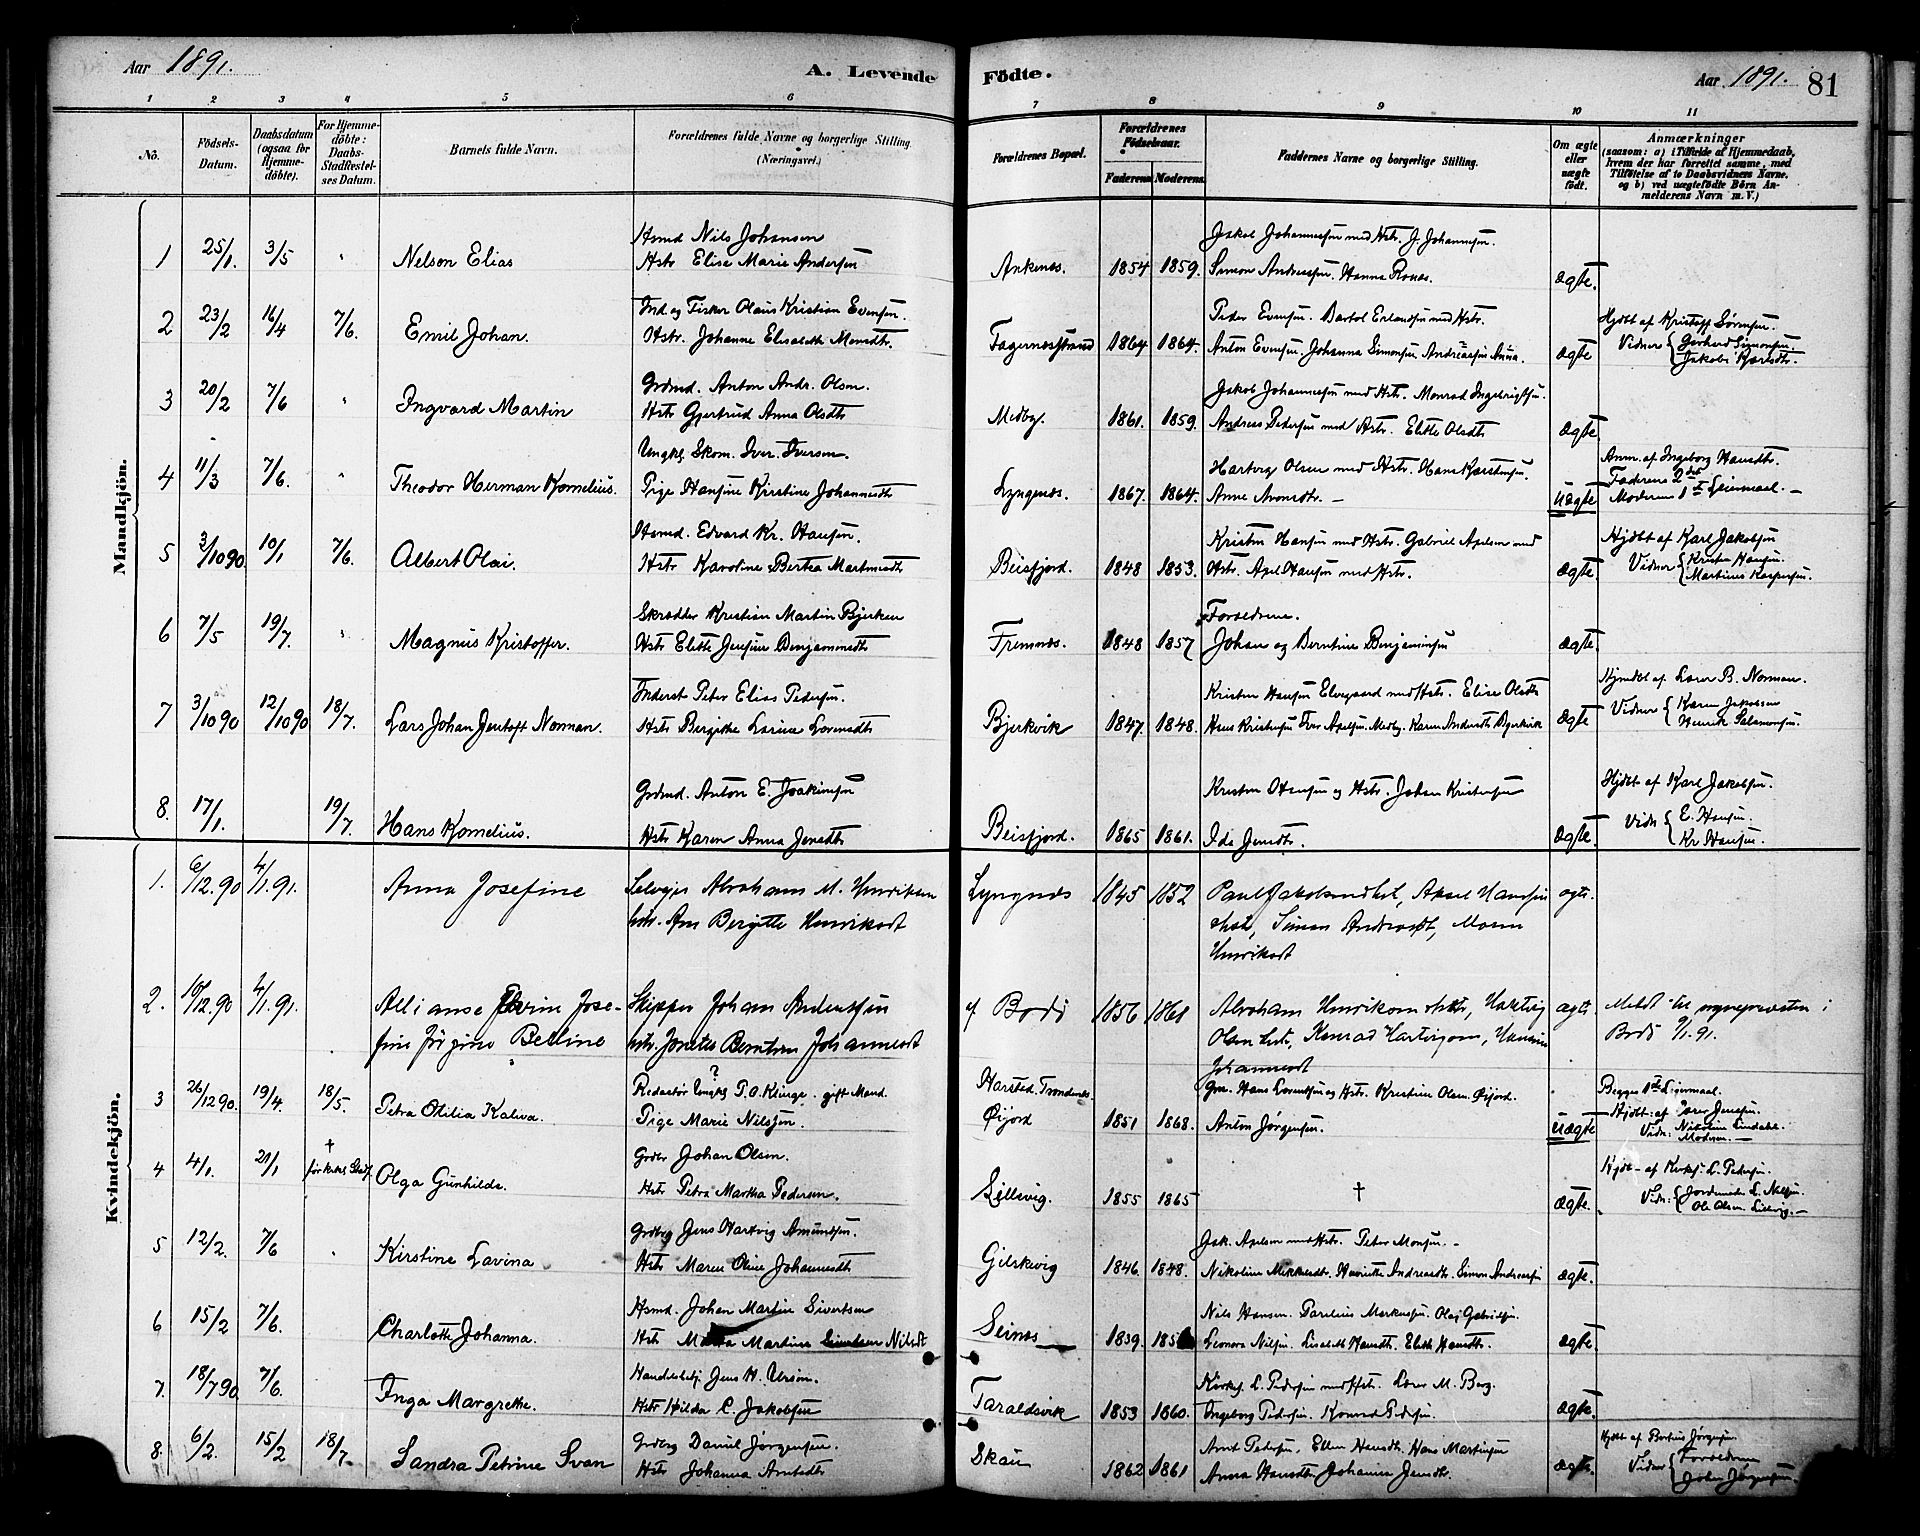 Aar 1891. A. Levende Födte. Aar 1891. 81
1 2 3 4 5 6 7 8 9 10 11
No. Födsels-Datum. Daabsdatum (ogsaa for Hjemmedöbte). For Hjemmedöbte: Daabs-Stadfæstelses Datum. Barnets fulde Navn. Forældrenes fulde Navne og borgerlige Stilling. (Næringsvei.) Forældrenes Bopæl. Forældrenes Födselsaar. Faderens Moderens Faddernes Navne og borgerlige Stilling. Om ægte eller uægte födt. Anmærkninger (saasom: a) i Tilfælde af Hjemmedaab, hvem der har forrettet samme, med Tilföielse af to Daabsvidners Navne, og b) ved uægtefödte Börn Anmelderens Navn m. V.)
Mandkjön.
Hsmd Nils Johansen Jakob Johannessen med Hstr. J. Johannesen.
1 25/1. 3/5 " Nelson Elias Hstr Elise Marie Andersen Ankenes. 1854 1859. Simon Andreassen. Hanna Ronæs. Ægte.
Ind og Fisker Olaus Kristian Evensen. Peder Evensen. Bertol Erlandsen med Hstr. Hjdbt af Kristoff Sørensen.
2 23/2 16/4 7/6. Emil Johan. Hstr. Johanne Elisabeth Monsdtr. Fagernesstrand 1864 1864. Anton Evensen. Johanna Simonsen Andreasen Anna. Ægte Vidner { Gerhard Simonsen. Jakobi Karlsdtr.
Grdmd. Anton Andr. Olsen. Jakob Johannesen med Hstr. Monrad Ingebrigtsen.
3 20/2 7/6 " Ingvard Martin Hstr Gjertrud Anna Olsdtr Medby. 1861. 1859. Andreas Pedersen med Hstr. Elitte Olsdtr Ægte.
Ungkl. Skom. Iver Iversen. Hartvig Olsen med Hstr. Hans Karstensen. Anm. af Ingeborg Hansdtr. Faderens 2det
4 11/3 7/6. " Theodor Herman Kornelius. Pige Hansine Kirstine Johannesdtr Lyngenes. 1867. 1864. Anne Aronsdtr. — Uægte Moderens 1ste Leiermaal. —
Hsmd. Edvard Kr. Hansen. Kristen Hansen med Hstr. Gabriel Axelsen med Hjdbt af Karl Jakobsen
5 3/10 90 10/1 7/6. Albert Olai. Hstr Karoline Bertea Martinesdtr Beisfjord. 1848 1853. Hstr. Axel Hansen med Hstr. Ægte. Vidner { Kristen Hansen. Martinus Kaspersen.
Skrædder Kristian Martin Bjerken Forældrene.
6 7/5 19/7. " Magnus Kristoffer. Hstr Elitte Jensine Benjaminsdtr Fremnes. 1848 1857 Johan og Berntine Benjaminsen ægte.
Inderst Peter Elias Pedersen. Kristen Hansen Elvegaard med Hstr. Elise Olsdtr Hjmdbt af Lærer B. Norman.
7 3/10 90 12/10 90 18/7. Lars Johan Jentoft Norman. Hstr Birgithe Larine Lorensdtr Bjerkvik 1847. 1848. Hans Kristensen Iver Axelsen. Medby. Karen Andersdtr Bjerkvik Ægte Vidner { Karen Jakobsen Henrik Salamonsen.
Grdmd. Anton E. Joakimsen Kristen Hansen og Hstr. Johan Kristensen Hjdbt af Karl Jakobsen.
8. 17/1. 19/7. Hans Kornelius. Hstr Karen Anna Jensdtr Beisfjord. 1865 1861. Ida Jensdtr. Ægte. Vidn { E. Hansen. Kr Hansen.
Kvindekjön.
1. 6/12. 90 4/1. 91. Anna Josefine Selveier Abraham M. Henriksen Lyngnes 1845 1852 Paul Jakobsen, Aksel Hansen ægte.
hstr. Ane Bergitte Henriksdt Simon Andreasdt, Maren
Henriksdt
2. 10/12. 90 4/1. 91. Allianse Josefine Skipper Johan Andersen af Bodö 1856 1861 Abraham Henriksen, Hartvig ægte Meldt til sognepresten i
Jörgine Berline hstr. Berntine Johannesdt Olsen, Konrad Hartvigsen, Bodö 9/1. 91.
Johannesdt
Redaktør Ungkl P. O. Klinge. gift Mand. ? Harsted. Trondenes. Hans Lorentsen og Hstr. Kristine Olsen. Øijord. Begges 1ste Leiermaal.
3 26/12 90. 19/4. 18/5. Petra Otilia Kaliva. Pige Marie Nilssen. Øijord 1851 1868. Anton Jørgensen. Uægte Hjdbt: af Lærer Jensen. Vidn: Nikoline Lindahl. Moderen. —
Grdbr Johan Olsen. Hjdbt – af Kirkes: L. Pedersen.
4 4/1. 21/1 † før Kirkes Stadf. Olga Gunhilda. Hstr Petra Martha Pedersen. Lillevig. 1855 1865 † Ægte. Vidn: { Jordemoder L. Nilsen. Ole Olsen Lillevig. —
Grdbrg Jens Hartvig Amundsen. Jak. Axelsen med Hstr. Peter Monsen. –
5 12/2. 7/6 " Kirstine Lavina Hstr Maren Oline Johannesdtr Gilskevig 1846. 1848. Nikoline Mikkelsdtr. Henriette Andreasdtr. Simon Andreasen Ægte.
Hsmd. Johan Martin Sivertsen Nils Hansen. Parelius Markussen. Olaf Gabrielsen.
6 15/2 7/6. Charlotte Johanna. Hstr Martha Martine Nilsdt Seines 1839. Leonora Nilsen. Lisabeth Hansdtr. Elitte Hansdtr. Ægte.
Handelsbetj Jens H. Ursin. Kirkes. L. Pedersen med Hstr. Lærer M. Berg.
7. 18/7 90 7/6. Inga Margrethe. Hstr Hilda C. Jakobsen Taraldsvik 1853 1860. Ingeborg Pedersen. Konrad Pedersen. Ægte.
Grdbrg Daniel Jørgensen. Arnt Pedersen, Ellen Hansdtr. Hans Martinsen Hjdbt af Bertius Jørgensen.
8. 6/2. 15/2 18/7. Sandra Petrine Svan Hstr Johanna Arntsdtr Skau 1862 1861 Anna Hansdtr. Johanna Jensdtr. Ægte. Vidner { Forældrene John Jørgensen.